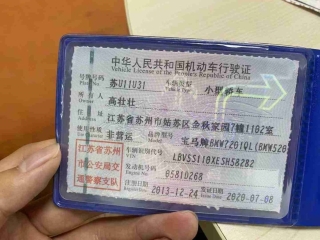 中华人民共和国机动车行驶证
Vehicle License of the People's Republic of China
号牌号码 苏U11U31 车辆类型 小型轿车
所有人 高壮壮
住址 江苏省苏州市姑苏区金秋家园7幢1102室
使用性质 非营运 品牌型号 宝马牌BMW7201QL(BMW520
江苏省苏州
市公安局交
通警察支队
车辆识别代号 LBVSS110XESH58282
发动机号码 05810268
注册日期 2013-12-24 发证日期 2020-07-08